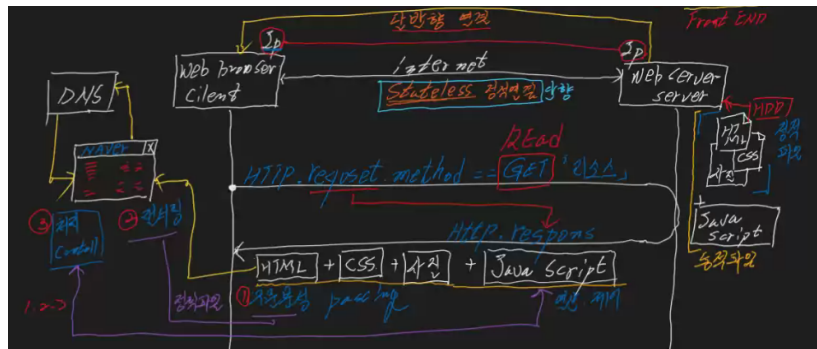 단방향 연결
Front END
Ip
Ip
Web browser
Cilent
internet
Stateless 정적연결 단방향
Web Server
server
HDD
DNS
NAVER X
HTML
CSS
사진
정적
파일
REad
HTTP.reqposet.method == GET 「리소스」
Http.respons
Java
script
동적파일
③ 처리
Controll
② 렌더링
HTML + CSS + 사진 + Java Script
정적파일
① 구문분석 passing
1.2.3